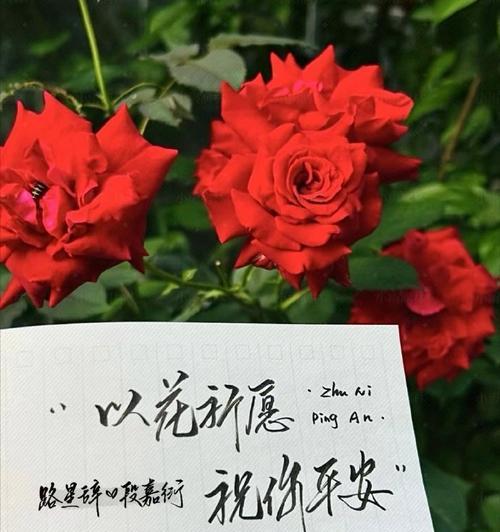 “以花祈愿
·Zhu Ni
Ping An·
祝你平安”
路星辞♡段嘉衍